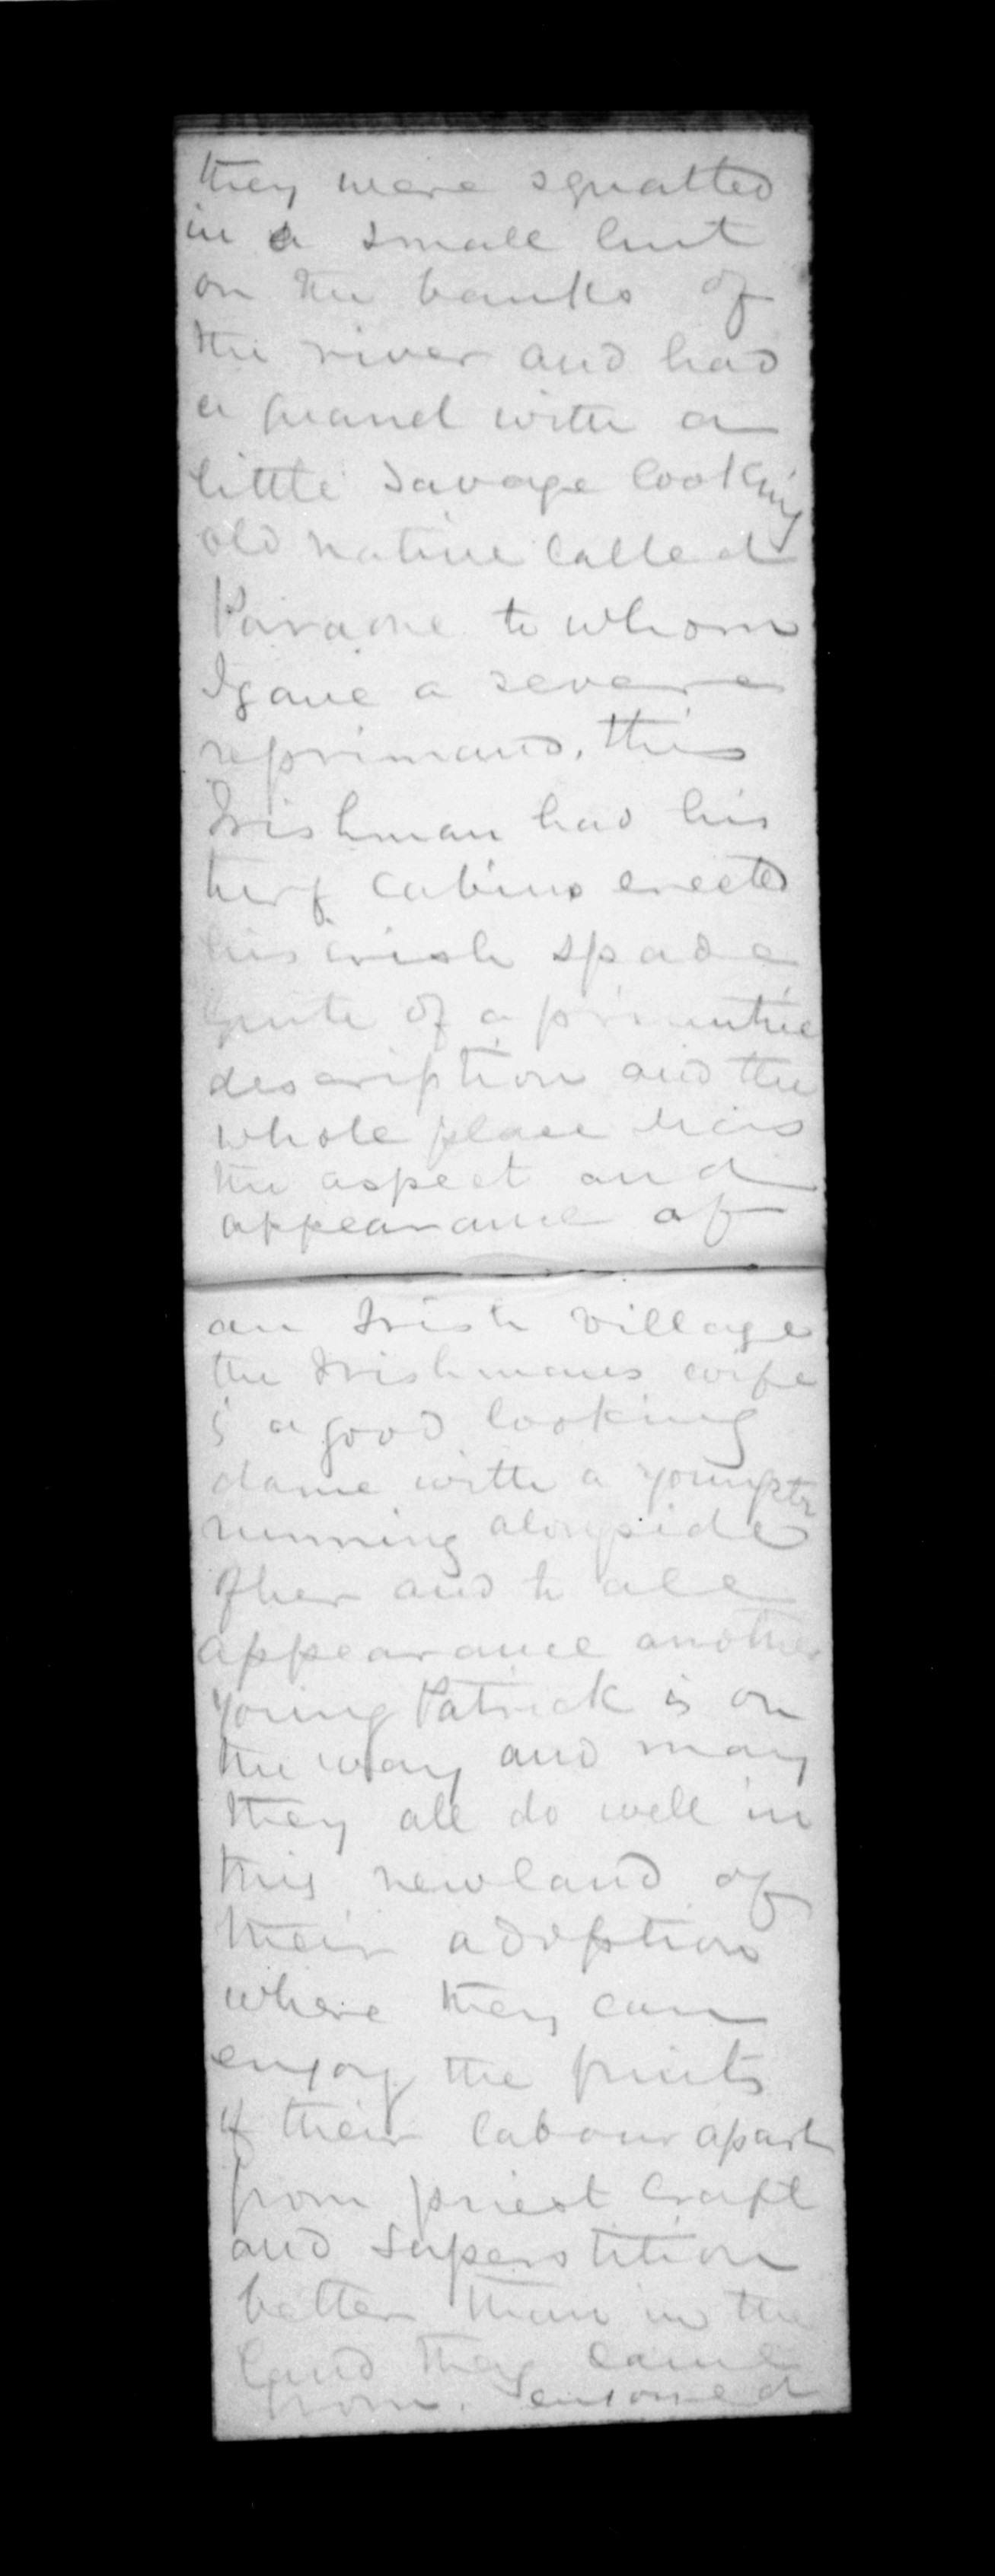 they were squatted
in a small hut
on the banks of
the river and had
a quarrel with a
little savage looking
old native called
Paraone to whom
I gave a severe
reprimand, this
Irishman had his
turf cabins erected
his irish spade
quite of a primitive
description and the
whole place has
the aspect and
appearance of
an Irish village
the Irishmans wife
is a good looking
dame with a youngster
running alongside
of her and to all
appearance another
young Patrick is on
the way and may
they all do well in
this new land of
their adoption
where they can
enjoy the fruits
of their labour apart
from priest craft
and superstition
better than in the
land they came
from. I enjoyed